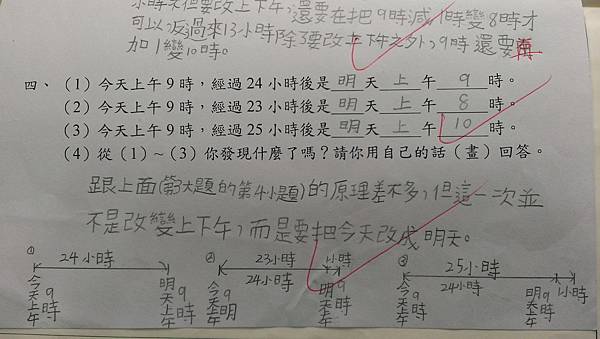 小時天但要改上下午，還要在把9時減1時變8時才
可以，反過來13小時除了要改上下午之外，9時還要再
加1變10時。
四、(1)今天上午9時，經過24小時後是明天上午9時。
(2)今天上午9時，經過23小時後是明天上午8時。
(3)今天上午9時，經過25小時後是明天上午10時。
(4)從(1)~(3)你發現什麼了嗎？請你用自己的話(畫)回答。
跟上面(第3大題的第4小題)的原理差不多，但這一次並
不是改變上下午，而是要把今天改成明天。
① 24小時 今天上午9時 明天上午9時
② 23小時 1小時 24小時 今天上午9時 明天上午9時
③ 25小時 24小時 1小時 今天上午9時 明天上午9時